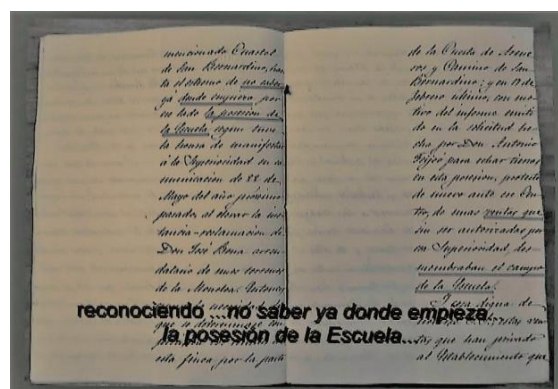 mencionado Cuartel
de San Bernardino, has
ta el estremo de no saber
ya donde empieza por
su lado la posesion de
la Escuela, segun tuve
la honra de manifestar
á la Superioridad en co
municacion de 22 de
Mayo del año próximo
pasado, al elevar la ins
tancia-reclamacion de
Don José Bona arren
datario de unos terrenos
de la Moncloa.
esta finca, por la parte
de la Cuesta de Arene
ros y Camino de San
Bernardino; y en 17 de
febrero último, con mo
tivo del informe emiti
do en la solicitud he
cha por Don Antonio
Feijóo para echar tierras
en esta posesion, protesté
de nuevo ante su Cen
tro, de unas ventas que
sin ser autorizadas por
su Superioridad, des
membraban el campo
de la Escuela.
Y cosa digna de
ventas
tas que han privado
al Establecimiento que
reconociendo ...no saber ya donde empieza
la posesión de la Escuela...